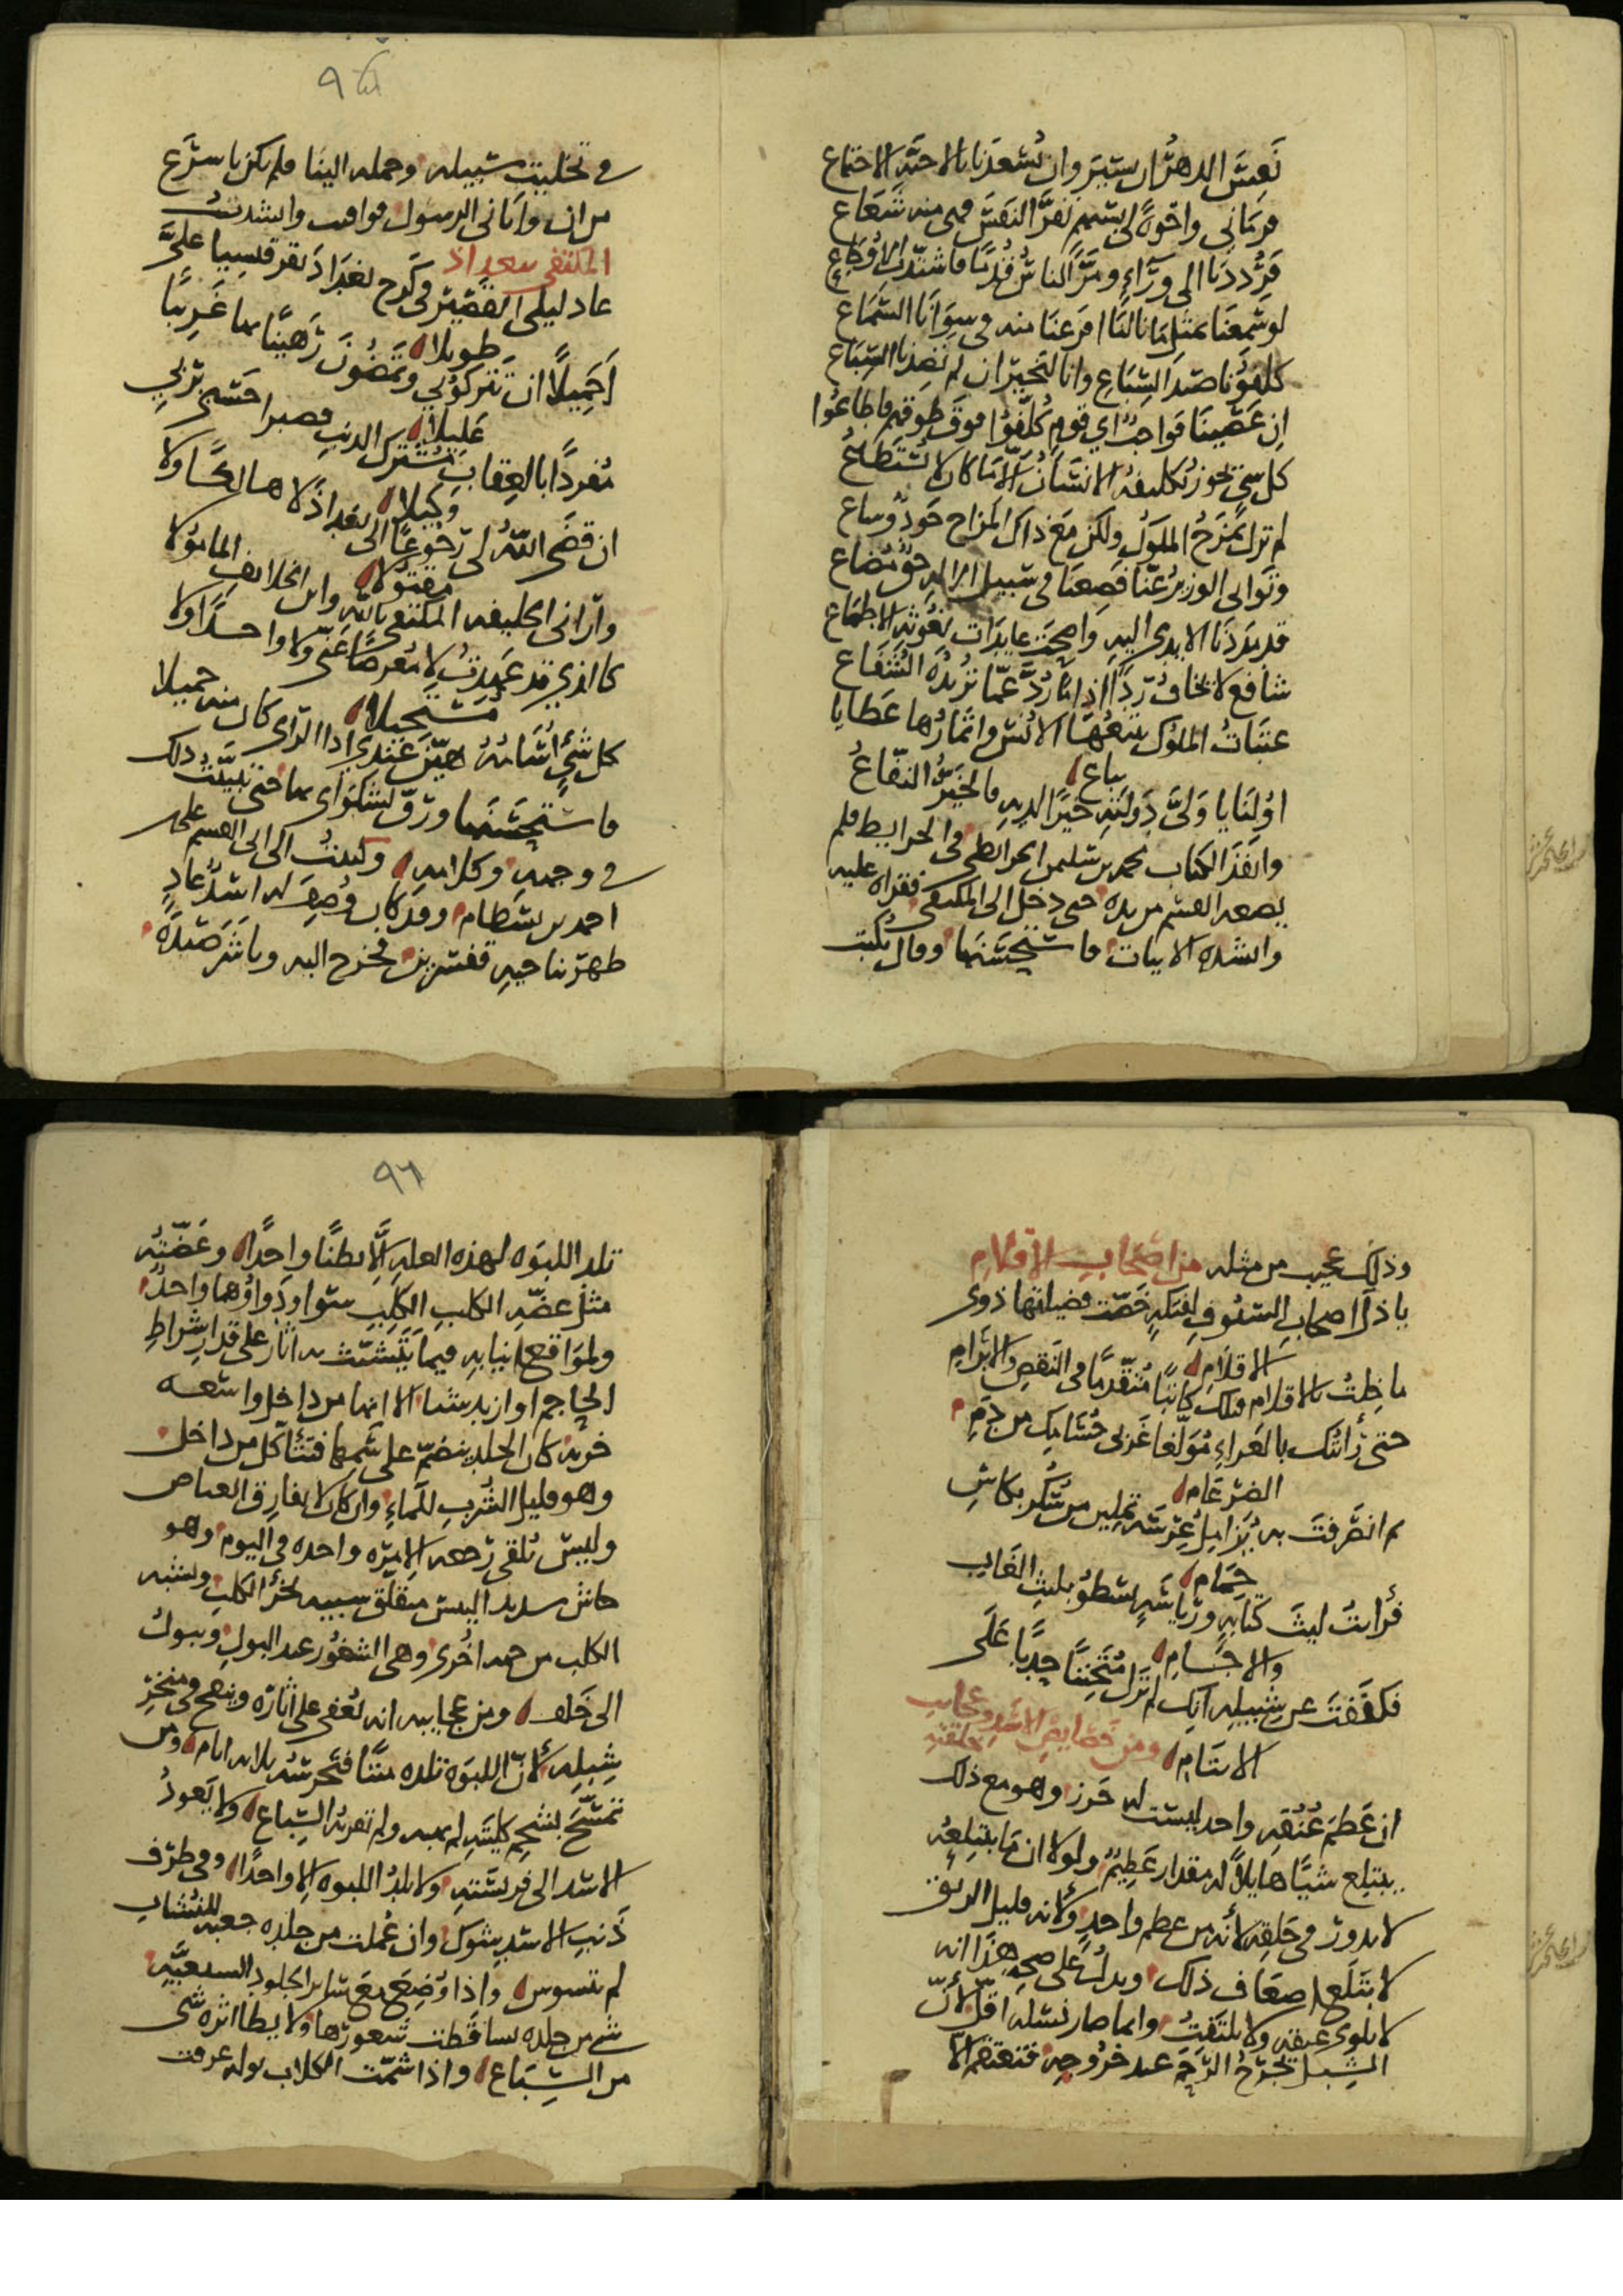 تَعِسَ الدهرُ ان يسَّرَ وان تُسْعدنا بالاحبَّة الاجتماع
فرماني واخوةً لي بسهمٍ نَفَّر النفس فهى منه شَعَاع
فرُددنا الى وَرَاءٍ ومَرَّ الناسُ قُدمًا فاشتدت الاوجاع
لو سَمِعنا بمثل ما نالنا افزعنا منه فى سِوَانا السَّمَاع
كلفونا صيد السِّباعِ وانا لبخيرٍ ان لم تصدنا السِّباع
ان عَصَينا فواجبٌ اي قومٍ كُلِّفُوا فوقَ طوقهم فاطاعُوا
كل شئ يجوز تكليفُه الانسانَ الا ما كان لا يُستطاعُ
لم تزل تمزحُ الملوكُ ولكن مع ذاك المزاح جودٌ وساع
وتوانى الوزيرُ عنّا فضِعنا فى سبيل الاله حقٌّ مُضاع
قد مددنا الايدى اليه واضحت عايدات بغوثه الاطماع
شافع لا يخافُ رَدًّا اذا ما رُدَّ عمّا تريدُه الشفّاع
عتبات الملوك يتبعُها الانس واثمارُها عَطَايا
تباع
اولنا يا ولىَّ دولته خيرًا لديه فالخيِّرُ النفّاعُ
وانفذ الكتاب محمد بن سليمن الخرائطي فى الخرايط فلم
يضعه القسم من يده حتى دخل الى المكتفى فقراه عليه
وانشده الابيات فاستحسنها وقال يُكتب
٩٥
فى تخليت سبيله وحمله الينا فلم يكن باسرَع
من ان وافاني الرسول فوافيت وانشدتُ
المكتفى ببغداذ
عاد ليلى القصير فى كرخ بغداذ بقرقيسيا علىَّ
طويلا
اَجَمِيلًا ان تتركوني وتمضُونَ رَهينًا بها غريبًا
عليلا
مُفردًا بالعقاب مشترك الذنب فصبرا حسبى بربي
وكيلا
ان قضى اللّه لى رجوعًا الى بغداذ لا هالكًا ولا
مقتولا
وآراني الخليفه المكتفى باللّه وابن الخلايف المامولا
كالذي قد عَهِدتُ لا مُعرضًا عنّى ولا واحدًا ولا
مستحيلا
كل شئ اُسامُهُ هيّنٌ عندي اذا الراى كان منه جميلا
فاستحسنها ورقّ لشكواى بها حتى تبيّنتُ ذلك
فى وجهه وكلامه وكتبتُ الى ابى القسم على
احمد بن بسطام وقد كان وُصِفَ له اسدٌ عادٍ
ظهر بناحيه قنسرين فخرج اليه وباشر صَيدَه
وذلك عجيب من مثله من اصحاب الاقلام
يا ذا اصحاب السيُوفِ لفتكهٍ خصّت فضيلتها ذوى
الاقلام
ما خلتُ بالاقلام قبلك كاتبًا متقدمًا فى النقض والابرام
حتى رأيتك بالعراءِ مُولعا
الضرغام
حِمَام
فرأيتُ ليثَ كتابه ورئاسهٍ يسطو بليث الغاب
والاجام
فكففت عن شبيله انك لم تزل متحننا حدبا عَلى
الايتام ومن خصايص الاسد وعجايب خلقته
ان عَظمَ عُنُقهِ واحد ليست له خرز وهو مع ذلك
يبتلع شيًا هايلًا له مقدار عظيم ولولا ان ما يبتلعه
لا يدور فى حَلقِه لأنه من عظم واحدٍ ولأنه قليل الريق
لابتلع اضعاف ذلك ويدلُ على صحه هذا انه
لا يلوى عنقه ولا يلتفت وانما صار نسله اقلّ لأنّ
الشبل يجرَحُ الرّحمَ عند خروجه فتعقم الا
٩٦
تلد اللبوه لهذه العله الّا بطنًا واحدًا وعَضّتُه
مثل عضّهِ الكلب الكَلِبِ سَوا ودواؤهما واحدٌ
ولمواقع انيابه فيما يتشبّث به اثار على قدر شراطِ
الحاجم او ازيد شيا الا انها من داخل واسعه
خربه كان الجلد ينضمّ على سَمّها فتتأكّل من داخل
وهو قليل الشُربِ للماءِ وان كان لا يفارق الغياض
وليس يُلقى رجعه الا مرّه واحده فى اليوم وهو
جاسٍ شديد اليبس متعلق شبيه بخُرْؤ الكلب ويشبه
الكلب من جهه اخرى وهى الشغُور عند البول ويبول
الى خَلف ومن عجايبه انه يُعفى على اثاره وينفخ فى منخَر
شِبله لأنّ اللبوة تلده ميتًا فتحرسُه ثلاثه ايام ومن
تمسّح بشحم كليته لم يهبه ولم تقربهُ السِّباع ولا يَعودُ
الاسد الى فريسته ولا تلدُ اللبوه الا واحدًا وفى طرف
ذَنب الاسد شوك وان عُملت من جلده جعبه للنُشاب
لم تسوس واذا وُضِعَ مع ساير الجلود السبعيَّه
شئ من جلده تساقطت شعورُها ولا يطا اثره شى
من السِّبَاع واذا شمّت الكلاب بوله عرفت